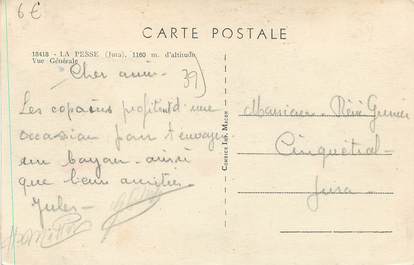 6€
CARTE POSTALE
18418 - LA PESSE (Jura), 1160 m. d'altitude
Vue Générale
39)
Cher ami -
Les copains profitent d'une
occasion pour t'envoyer
un - ainsi
que leurs amitiés
Jules
Monsieur René
Cinquétral -
Jura -
COMBIER IMP. MACON